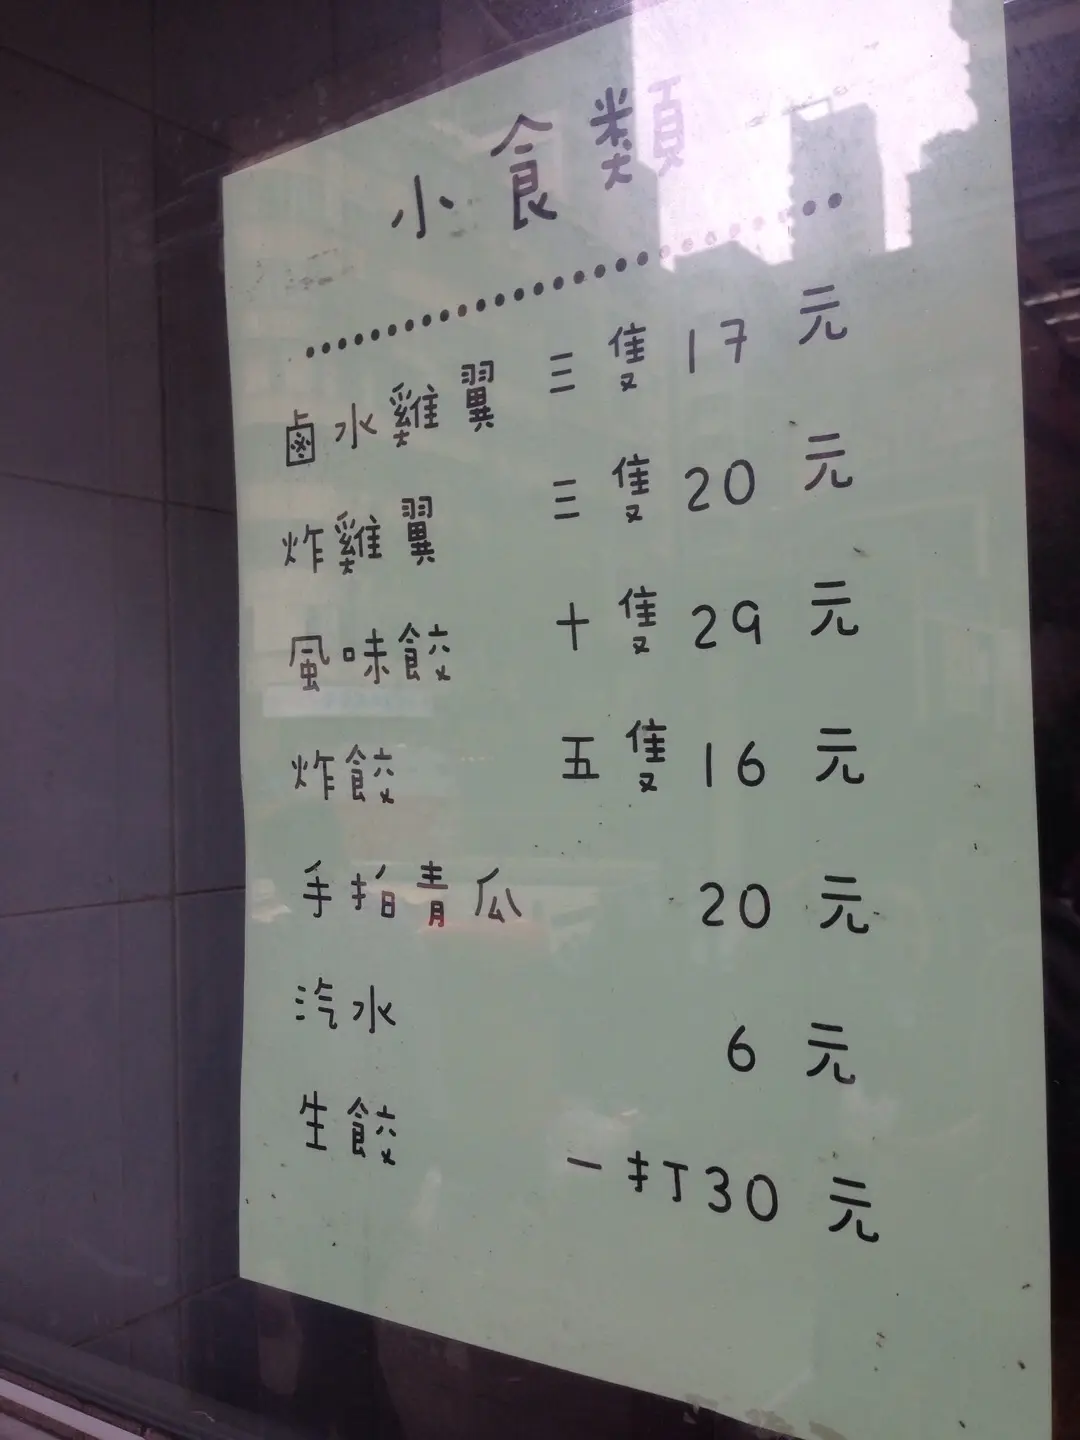 小食類
鹵水雞翼 三隻 17 元
炸雞翼 三隻 20 元
風味餃 十隻 29 元
炸餃 五隻 16 元
手拍青瓜 20 元
汽水 6 元
生餃 一打 30 元